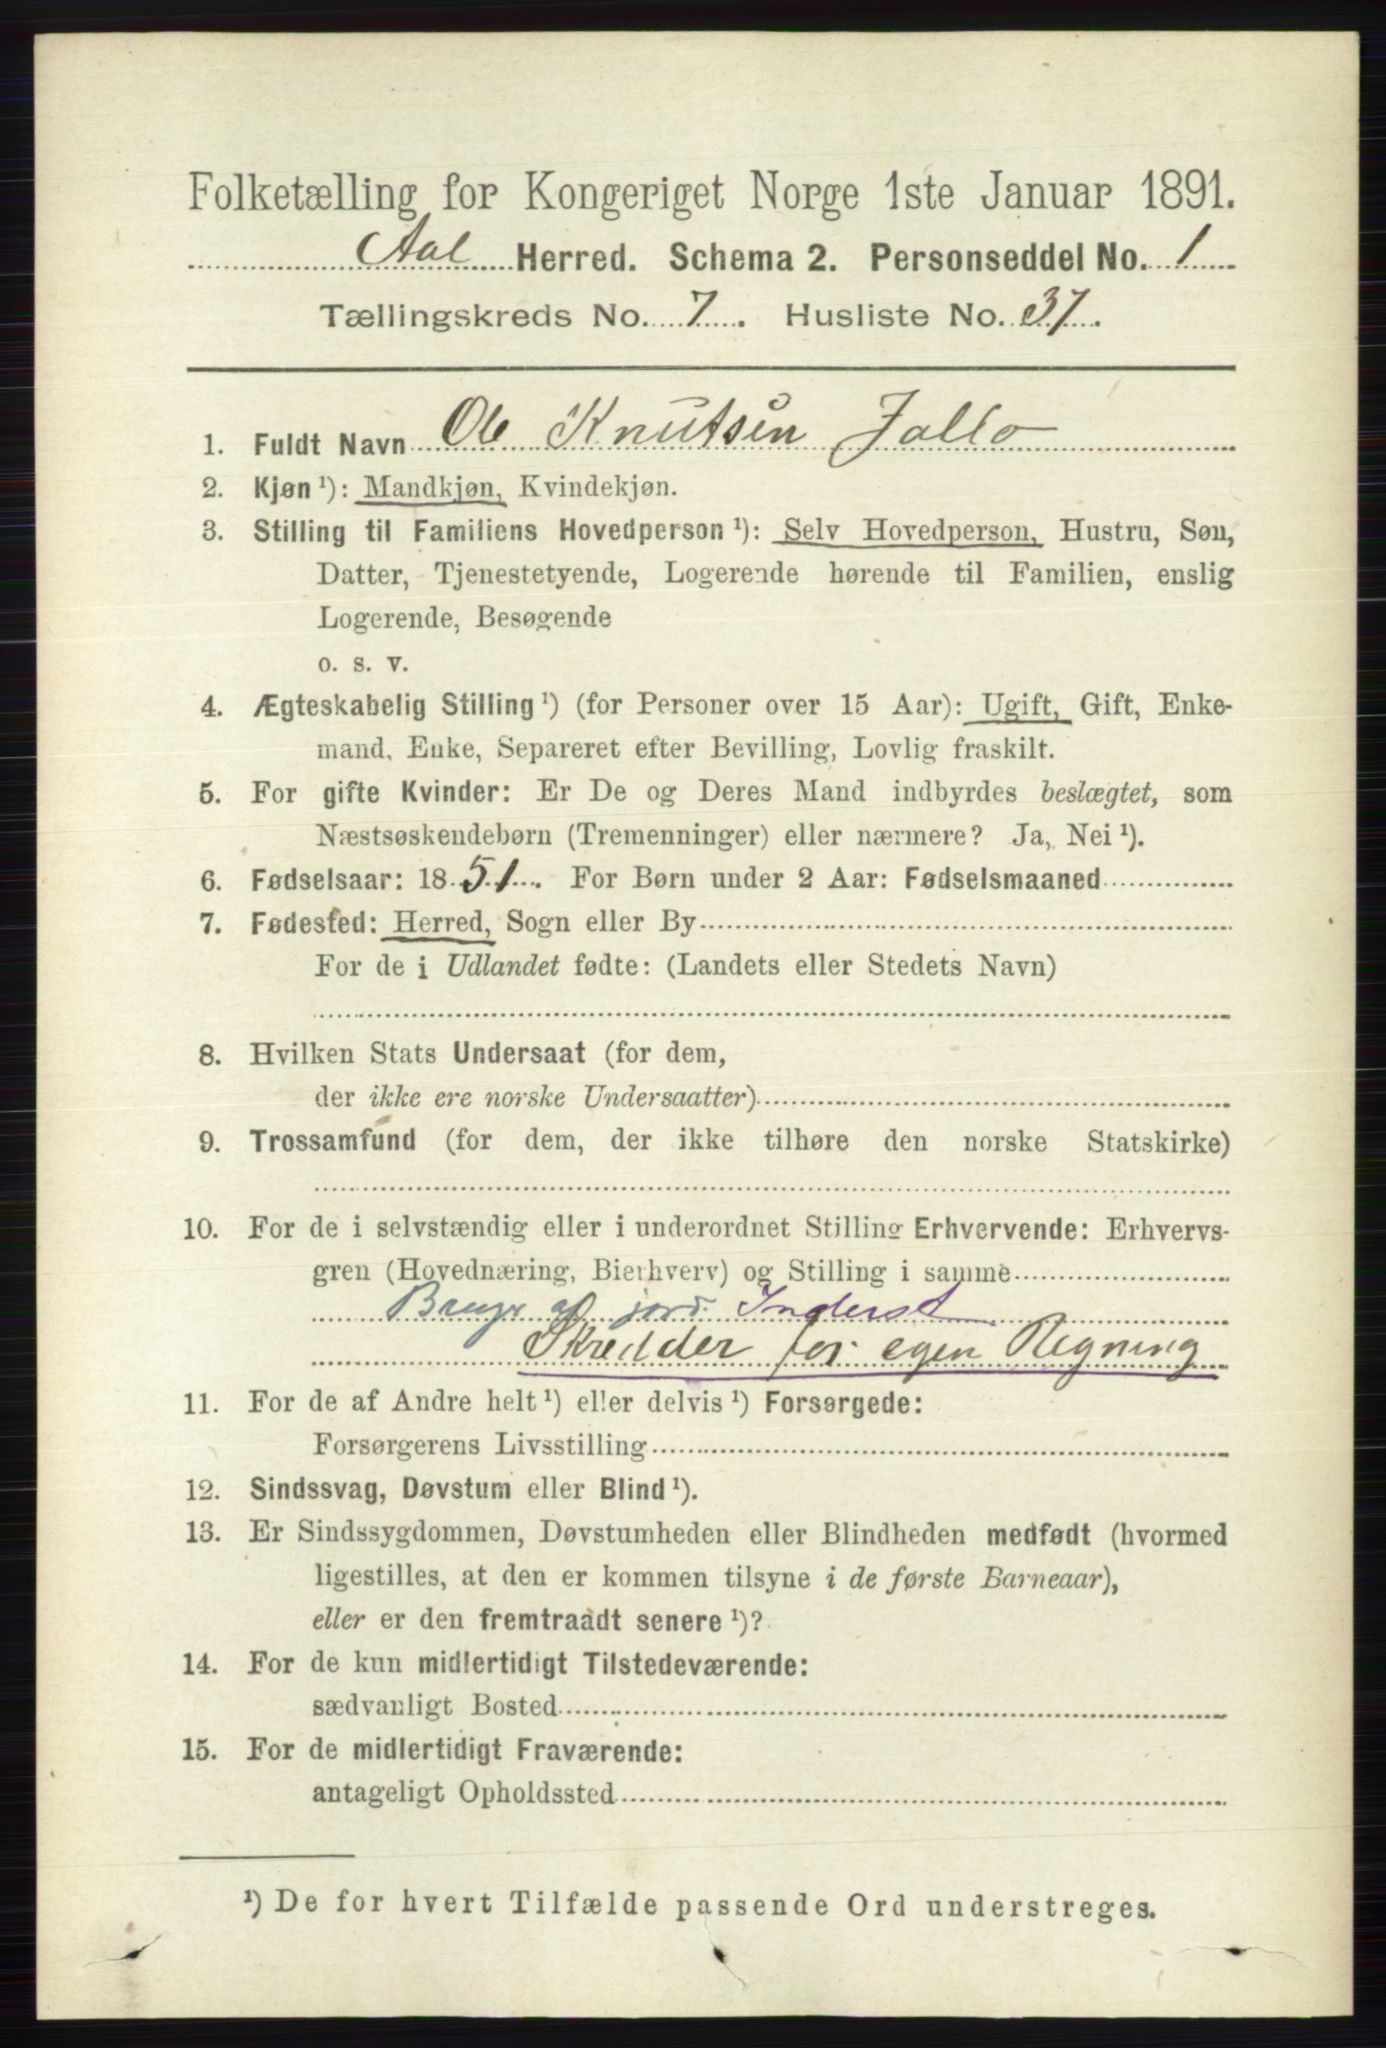 Folketælling for Kongeriget Norge 1ste Januar 1891.
Aal Herred. Schema 2. Personseddel No. 1
Tællingskreds No. 7. Husliste No. 37.
1. Fuldt Navn Ole Knutsen
2. Kjøn ¹): Mandkjøn, Kvindekjøn.
3. Stilling til Familiens Hovedperson ¹): Selv Hovedperson, Hustru, Søn,
Datter, Tjenestetyende, Logerende hørende til Familien, enslig
Logerende, Besøgende
o. s. v.
4. Ægteskabelig Stilling ¹) (for Personer over 15 Aar): Ugift, Gift, Enke-
mand, Enke, Separeret efter Bevilling, Lovlig fraskilt.
5. For gifte Kvinder: Er De og Deres Mand indbyrdes beslægtet, som
Næstsøskendebørn (Tremenninger) eller nærmere? Ja, Nei ¹).
6. Fødselsaar: 1851. For Børn under 2 Aar: Fødselsmaaned
7. Fødested: Herred, Sogn eller By
For de i Udlandet fødte: (Landets eller Stedets Navn)
8. Hvilken Stats Undersaat (for dem,
der ikke ere norske Undersaatter)
9. Trossamfund (for dem, der ikke tilhøre den norske Statskirke)
10. For de i selvstændig eller i underordnet Stilling Erhvervende: Erhvervs-
gren (Hovednæring, Bierhverv) og Stilling i samme
Bruger af jord. Inderst
Skredder for egen Regning
11. For de af Andre helt ¹) eller delvis ¹) Forsørgede:
Forsørgerens Livsstilling
12. Sindssvag, Døvstum eller Blind ¹).
13. Er Sindssygdommen, Døvstumheden eller Blindheden medfødt (hvormed
ligestilles, at den er kommen tilsyne i de første Barneaar),
eller er den fremtraadt senere ¹)?
14. For de kun midlertidigt Tilstedeværende:
sædvanligt Bosted
15. For de midlertidigt Fraværende:
antageligt Opholdssted
¹) De for hvert Tilfælde passende Ord understreges.